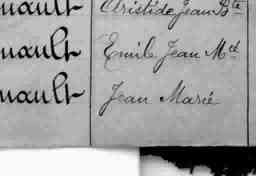 nault Aristide Jean Bte
nault Emile Jean Mel
nault Jean Marie